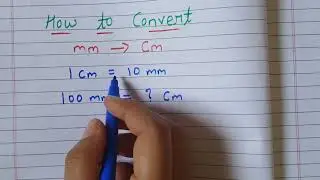 How to Convert
mm → Cm
1 Cm = 10 mm
100 mm = ? Cm